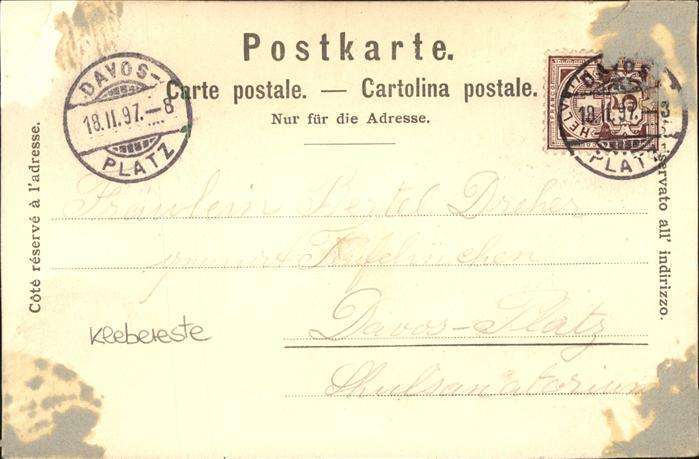 Postkarte.
Carte postale. — Cartolina postale.
Nur für die Adresse.
DAVOS-
18.II.97.-8
PLATZ
HELVETIA
DAVOS
18.II.97.
PLATZ
Côté réservé à l'adresse.
riservato all' indirizzo.
Fräulein Bertel Dreher
Davos-Platz
Klebereste